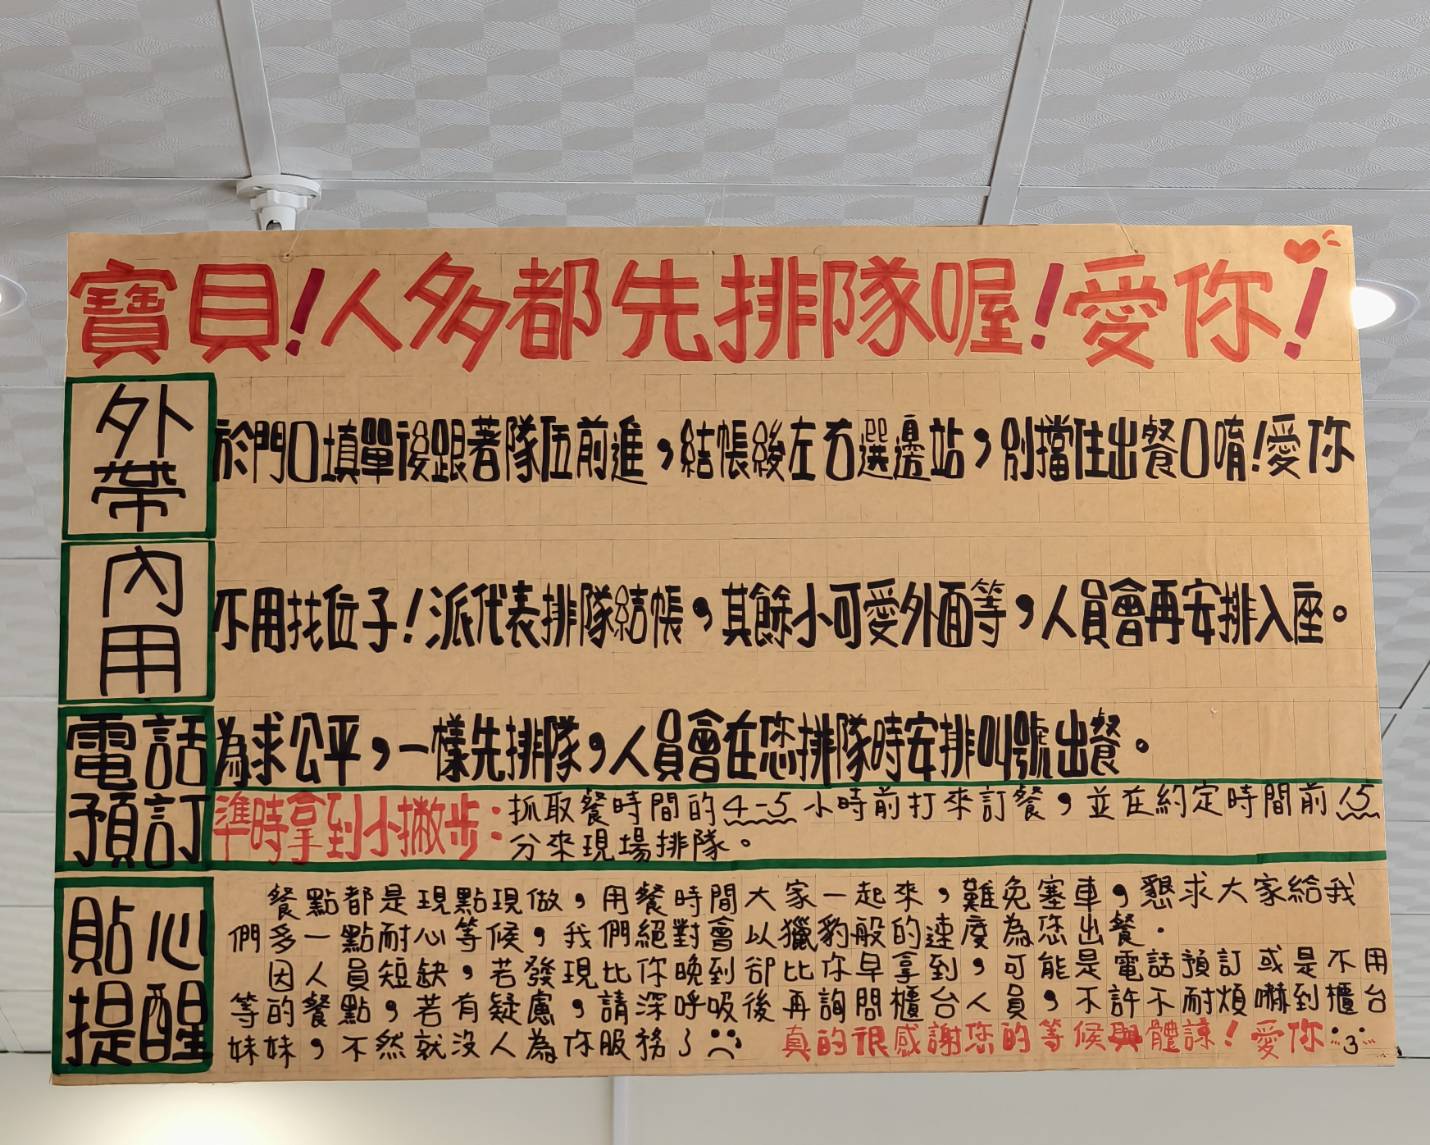 寶貝!人多都先排隊喔!愛你!
外帶
於門口填單後跟著隊伍前進,結帳後左右選邊站,別擋住出餐口唷!愛你
內用
不用找位子!派代表排隊結帳,其餘小可愛外面等,人員會再安排入座。
電話預訂
為求公平,一樣先排隊,人員會在您排隊時安排叫號出餐。
準時拿到小撇步:抓取餐時間的4-5小時前打來訂餐,並在約定時間前15
分來現場排隊。
貼心提醒
餐點都是現點現做,用餐時間大家一起來,難免塞車,懇求大家給我
們多一點耐心等候,我們絕對會以獵豹般的速度為您出餐.
因人員短缺,若發現比你晚到卻比你早拿到,可能是電話預訂或是不用
等的餐點,若有疑慮,請深呼吸後再詢問櫃台人員,不許不耐煩嚇到櫃台
妹妹,不然就沒人為你服務了 真的很感謝您的等候與體諒!愛你